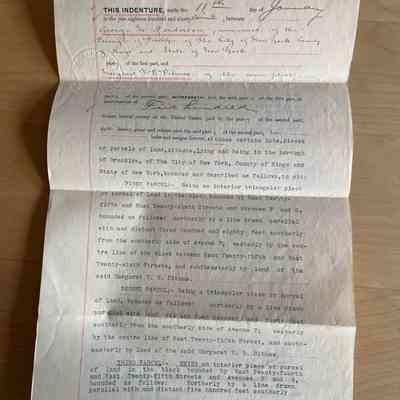 THIS INDENTURE, made the 11th day of January
in the year eighteen hundred and ninety between
George W. unmarried, of the
of The City of New York County
of Kings and State of New York
part of the first part, and
Margaret V. B. Ditmas of the same place
part of the second part, WITNESSETH: that the said part of the first part,
consideration of Five Hundred
lawful money of the United States, paid by the part of the second part,
and assigns forever, all those certain lots, pieces
or parcels of land, situate, lying and being in the borough
of Brooklyn, of The City of New York, County of Kings and
State of New York, bounded and described as follows, to wit:
FIRST PARCEL:- Being an interior triangular piece
or parcel of land in the block bounded by East Twenty-
fifth and East Twenty-sixth Streets and Avenues F and G,
bounded as follows: northerly by a line drawn parallel
with and distant three hundred and eighty feet southerly
from the southerly side of Avenue F; westerly by the cen-
tre line of the block between East Twenty-fifth and East
Twenty-sixth Streets, and southeasterly by land of the
said Margaret V. B. Ditmas.
SECOND PARCEL:- Being a triangular piece or parcel
of land, bounded as follows: northerly by a line drawn
parallel with and feet
southerly from the southerly side of Avenue F; westerly
by the centre line of East Twenty-fifth Street, and south-
easterly by land of the said Margaret V. B. Ditmas.
THIRD PARCEL:- BEING an interior piece or parcel
of land in the block bounded by East Twenty-fourth
and East Twenty-fifth Streets and Avenues F and G,
bounded as follows: Northerly by a line drawn
parallel with and distant five hundred feet southerly